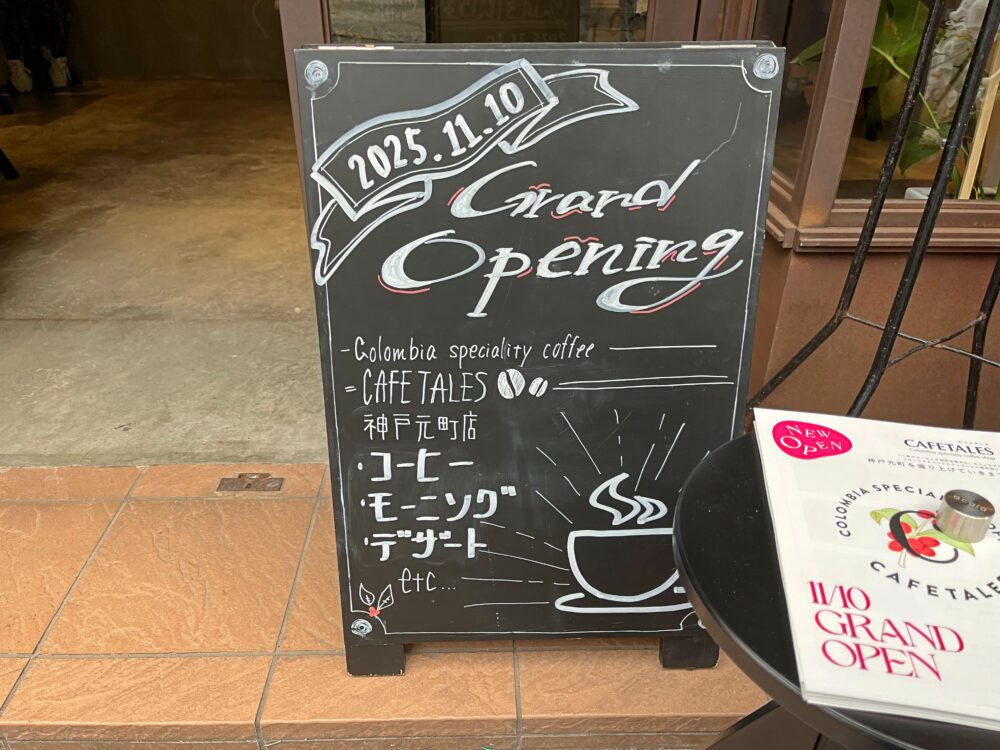 2025.11.10
Grand
Opening
-Colombia speciality coffee
=CAFE TALES
神戸元町店
・コーヒー
・モーニング
・デザート
etc...
NEW
OPEN
CAFETALES
COLOMBIA SPECIAL
CAFETALE
11/10
GRAND
OPEN